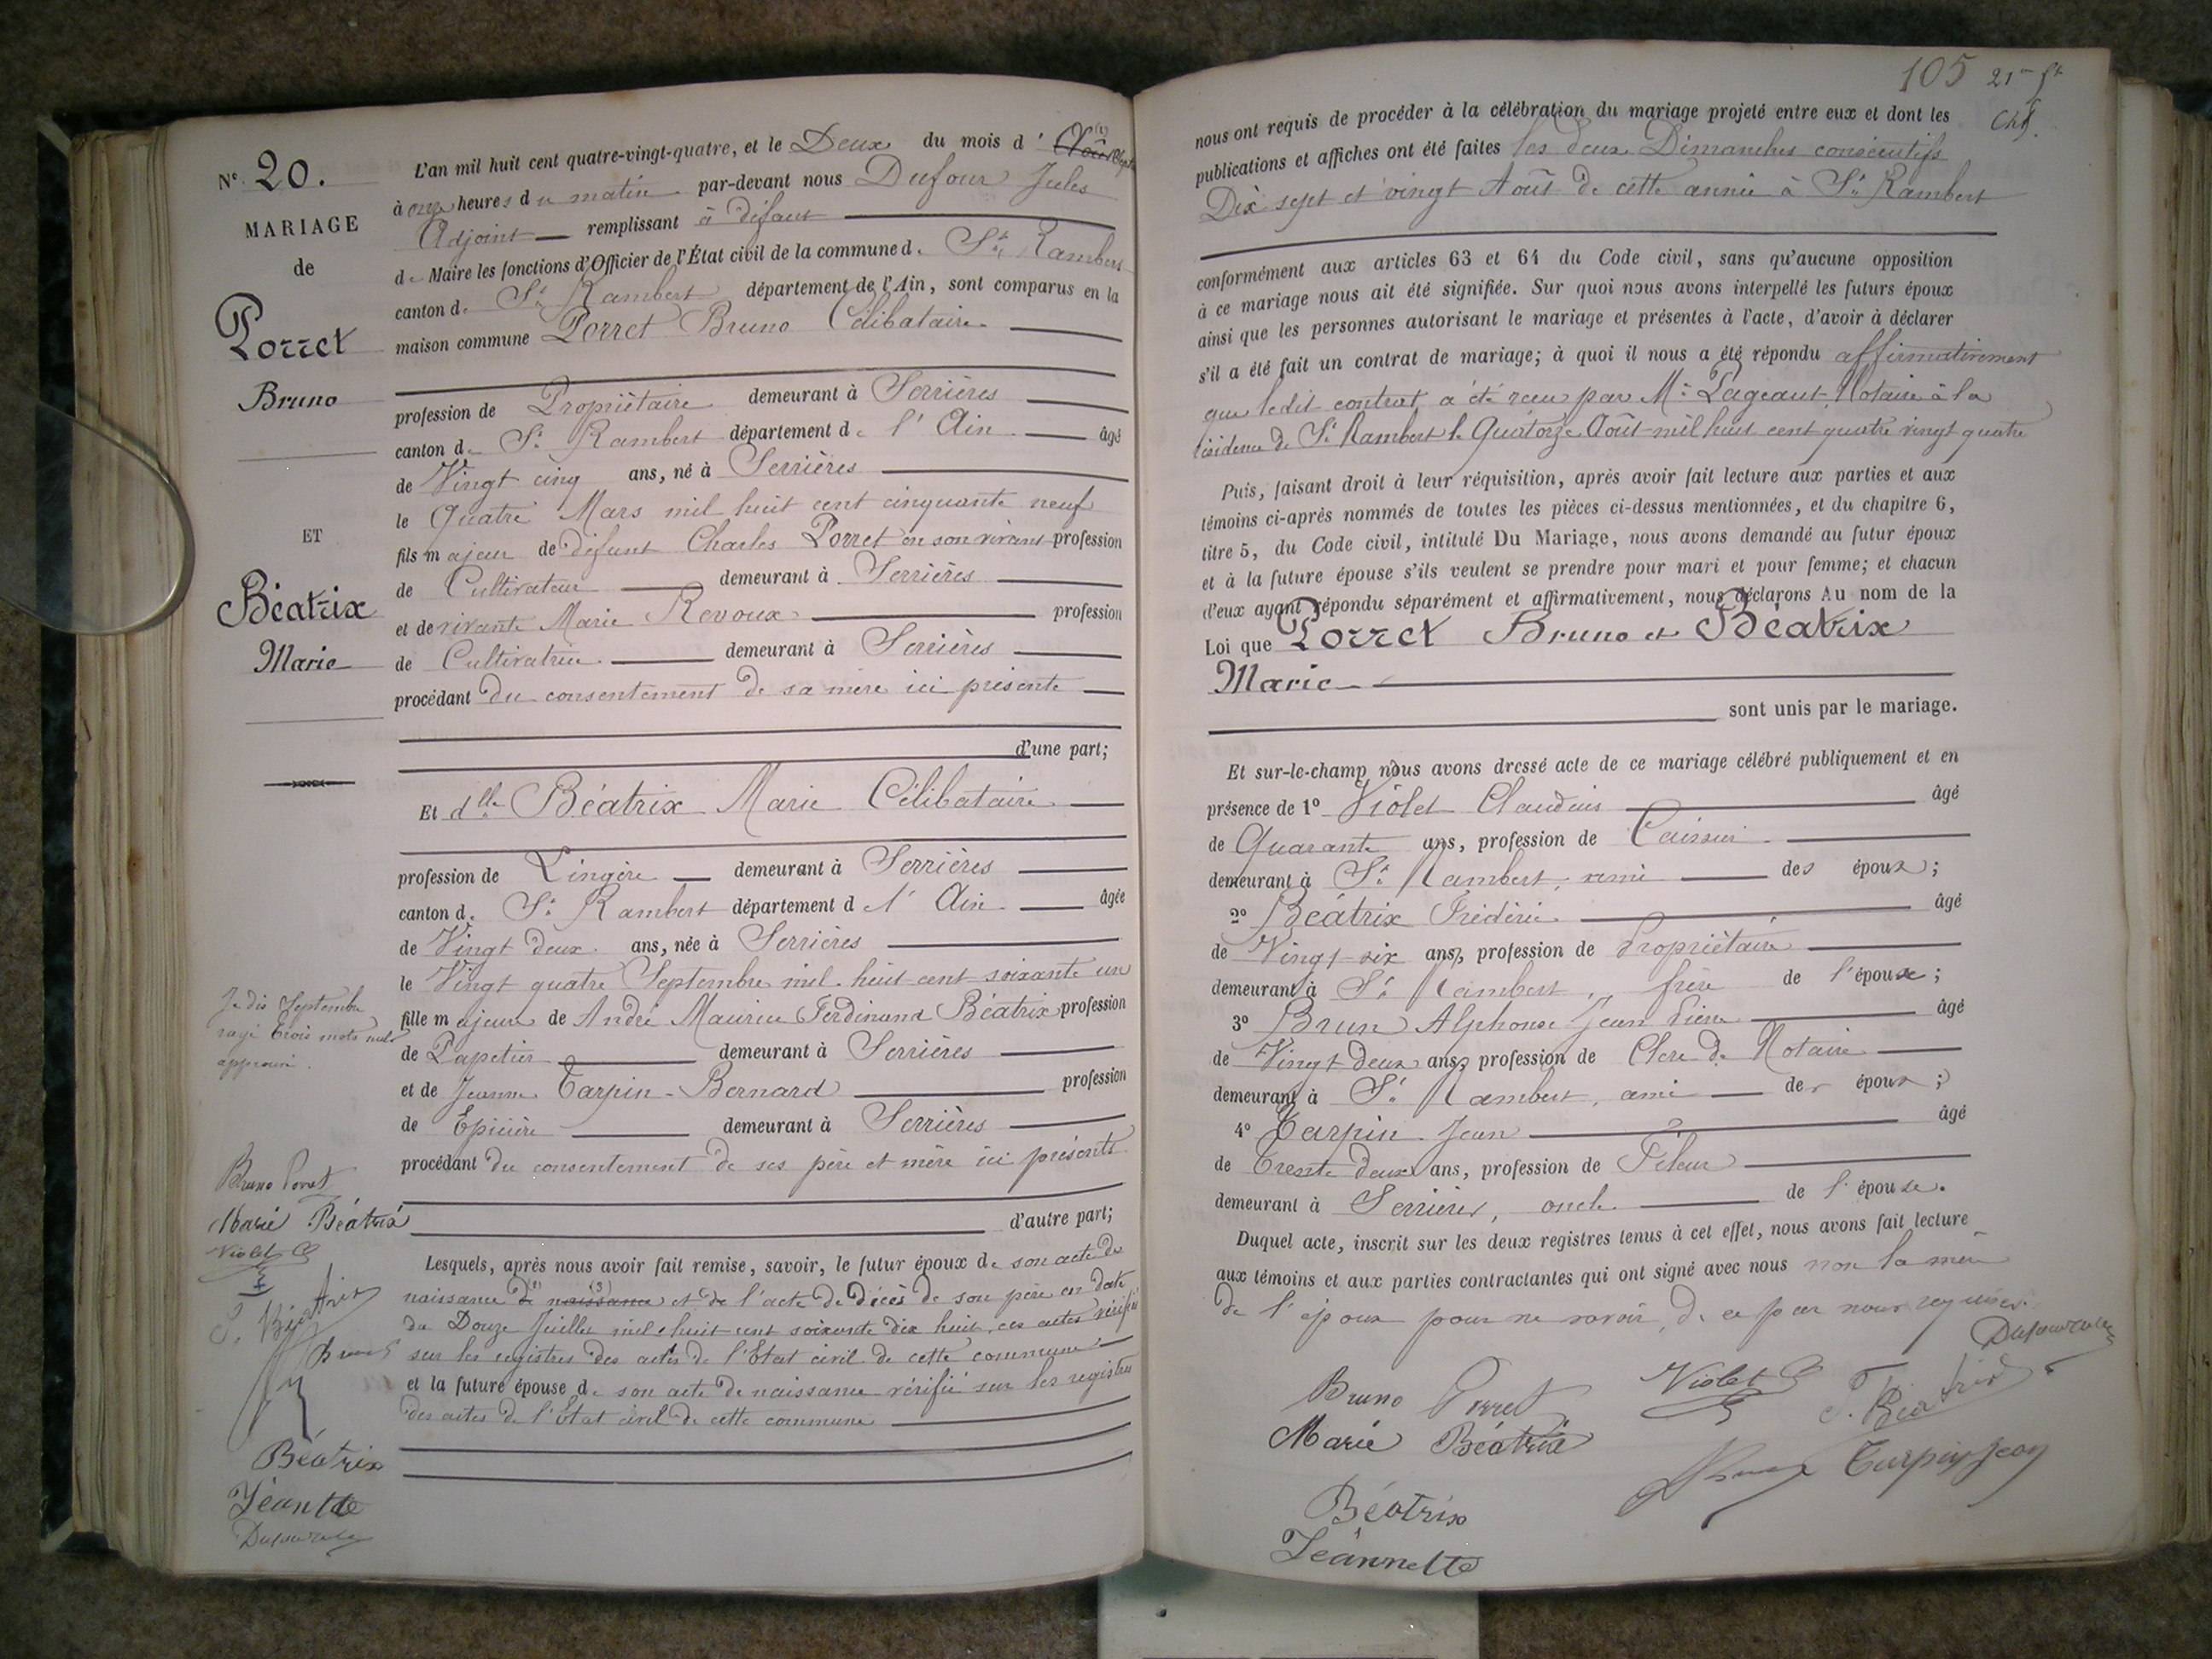 N° 20.
MARIAGE
de
Porret
Bruno
ET
Béatrix
Marie
Je dis Septembre
rayé trois mots nuls
approuvé.
Bruno Porret
Marie Béatrix
Violet C
F. Béatrix
Brun
Béatrix
Jeannette
L'an mil huit cent quatre-vingt-quatre, et le Deux du mois d' Août (1) Septbre
à onze heures du matin par-devant nous Dufour Jules
Adjoint remplissant à défaut
de Maire les fonctions d'Officier de l'État civil de la commune de St Rambert
canton de St Rambert département de l'Ain, sont comparus en la
maison commune Porret Bruno Célibataire
profession de Propriétaire demeurant à Serrières
canton de St Rambert département de l'Ain âgé
de Vingt cinq ans, né à Serrières
le Quatre Mars mil huit cent cinquante neuf
fils majeur de défunt Charles Porret en son vivant profession
de Cultivateur demeurant à Serrières
et de vivante Marie Revoux profession
de Cultivatrice demeurant à Serrières
procédant du consentement de sa mère ici présente
d'une part;
Et dlle Béatrix Marie Célibataire
profession de Lingère demeurant à Serrières
canton de St Rambert département d l'Ain âgée
de Vingt deux ans, née à Serrières
le Vingt quatre Septembre mil huit cent soixante un
fille majeure de André Maurice Ferdinand Béatrix profession
de Papetier demeurant à Serrières
et de Jeanne Tarpin-Bernard profession
de Epicière demeurant à Serrières
procédant du consentement de ses père et mère ici présents
d'autre part;
Lesquels, après nous avoir fait remise, savoir, le futur époux de son acte de
naissance de (2) naissance (3) et de l'acte de décès de son père en date
du Douze Juillet mil huit cent soixante dix huit, ces actes vérifiés
sur les registres des actes de l'Etat civil de cette commune
et la future épouse de son acte de naissance vérifié sur les registres
des actes de l'Etat civil de cette commune
105 21me ft
nous ont requis de procéder à la célébration du mariage projeté entre eux et dont les
publications et affiches ont été faites les deux Dimanches consécutifs
Dix sept et vingt Août de cette année à St Rambert
conformément aux articles 63 et 64 du Code civil, sans qu'aucune opposition
à ce mariage nous ait été signifiée. Sur quoi nous avons interpellé les futurs époux
ainsi que les personnes autorisant le mariage et présentes à l'acte, d'avoir à déclarer
s'il a été fait un contrat de mariage; à quoi il nous a été répondu affirmativement
que ledit contrat a été reçu par Me Lageant Notaire à la
résidence de St Rambert le Quatorze Août mil huit cent quatre vingt quatre
Puis, faisant droit à leur réquisition, après avoir fait lecture aux parties et aux
témoins ci-après nommés de toutes les pièces ci-dessus mentionnées, et du chapitre 6,
titre 5, du Code civil, intitulé Du Mariage, nous avons demandé au futur époux
et à la future épouse s'ils veulent se prendre pour mari et pour femme; et chacun
d'eux ayant répondu séparément et affirmativement, nous déclarons Au nom de la
Loi que Porret Bruno et Béatrix
Marie
sont unis par le mariage.
Et sur-le-champ nous avons dressé acte de ce mariage célébré publiquement et en
présence de 1° Violet Claudius âgé
de Quarante ans, profession de Caissier
demeurant à St Rambert, ami des époux;
2° Béatrix Frédéric âgé
de Vingt-six ans, profession de Propriétaire
demeurant à St Rambert, frère de l'épouse;
3° Brun Alphonse Jean Pierre âgé
de Vingt deux ans, profession de Clerc de Notaire
demeurant à St Rambert, ami des époux;
4° Tarpin Jean âgé
de Trente deux ans, profession de Fileur
demeurant à Serrières, oncle de l'épouse.
Duquel acte, inscrit sur les deux registres tenus à cet effet, nous avons fait lecture
aux témoins et aux parties contractantes qui ont signé avec nous non la mère
de l'époux pour ne savoir, de ce par nous requise.
Bruno Porret Violet C F. Béatrix
Marie Béatrix
Brun Tarpin Jean
Béatrix
Jeannette